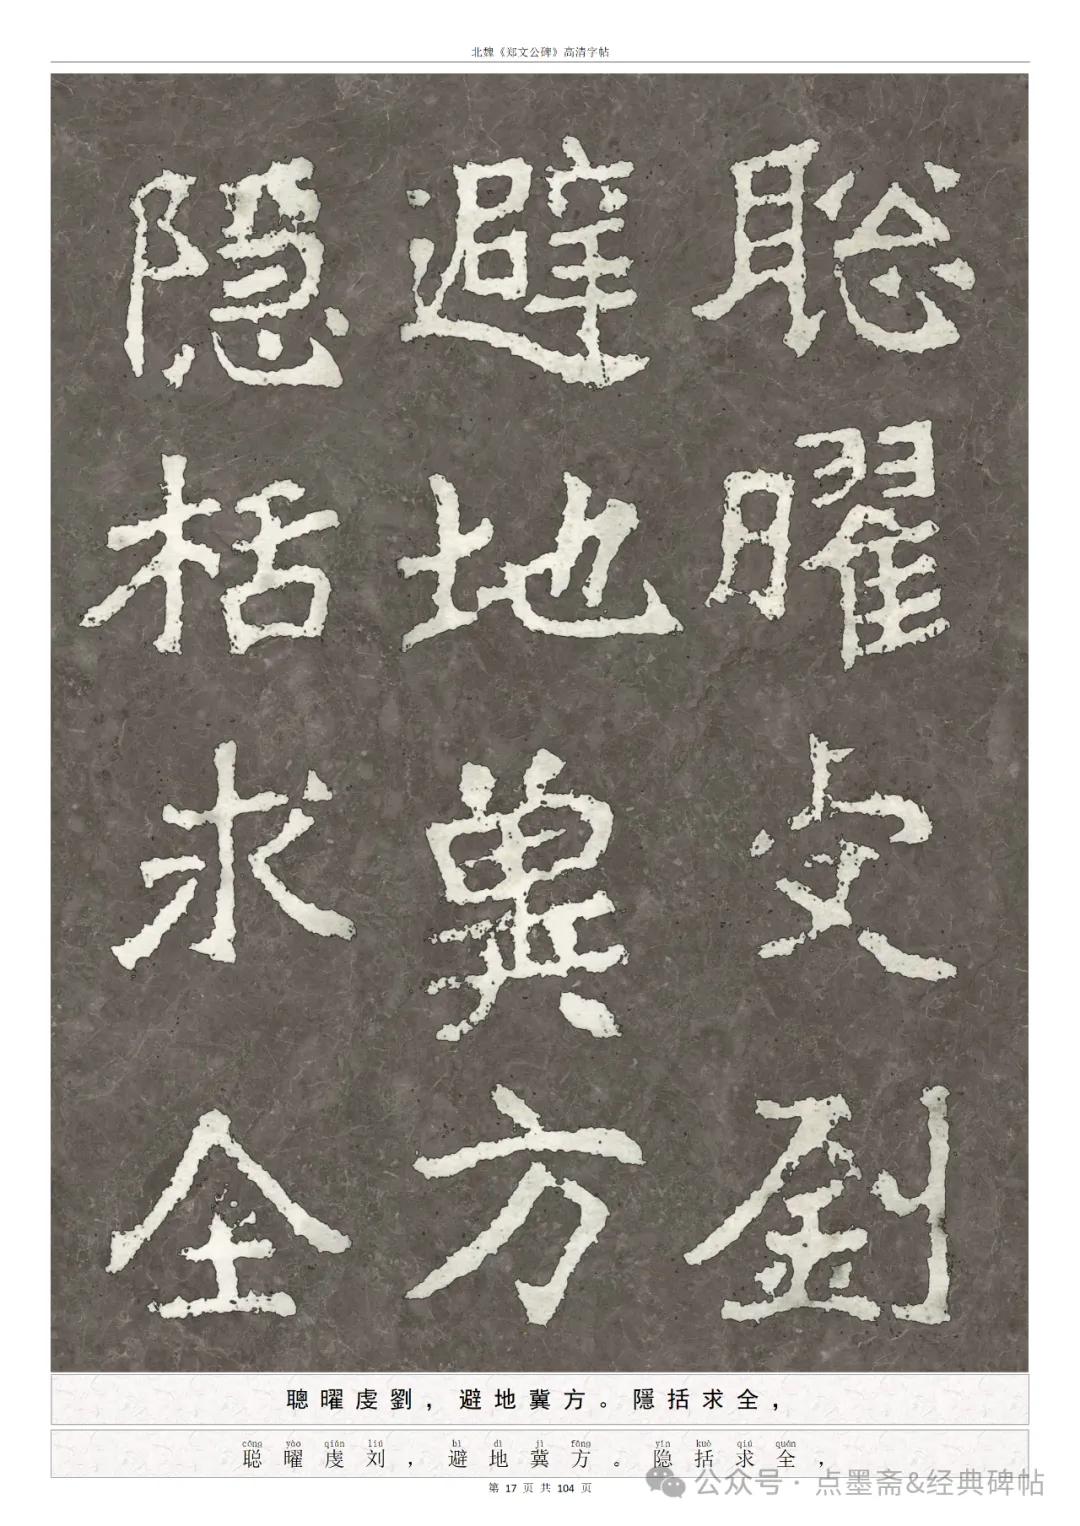 北魏《郑文公碑》高清字帖
聡曜虔劉
避地冀方
隱括求全
聰曜虔劉，避地冀方。隱括求全，
cōng yào qián liú bì dì jì fāng yǐn kuò qiú quán
聪曜虔刘，避地冀方。隐括求全，
第 17 页 共 104 页
公众号 · 点墨斋&经典碑帖